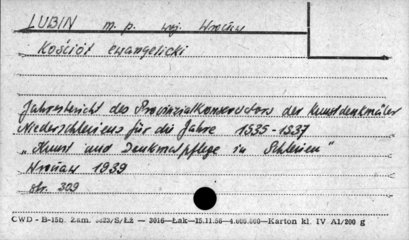 LUBIN m. p. woj. Wrocław
Kościół ewangelicki
Jahresbericht des Provinzialkonservators der Kunstdenkmäler
Niederschlesiens für die Jahre 1535-1537
„Kunst und Denkmalpflege in Schlesien"
Wrocław 1939
str. 309
CWD - B-15b. Zam. S/Łż — 3016—Łak—15.11.56—4.000.000—Karton kl. IV A1/200 g